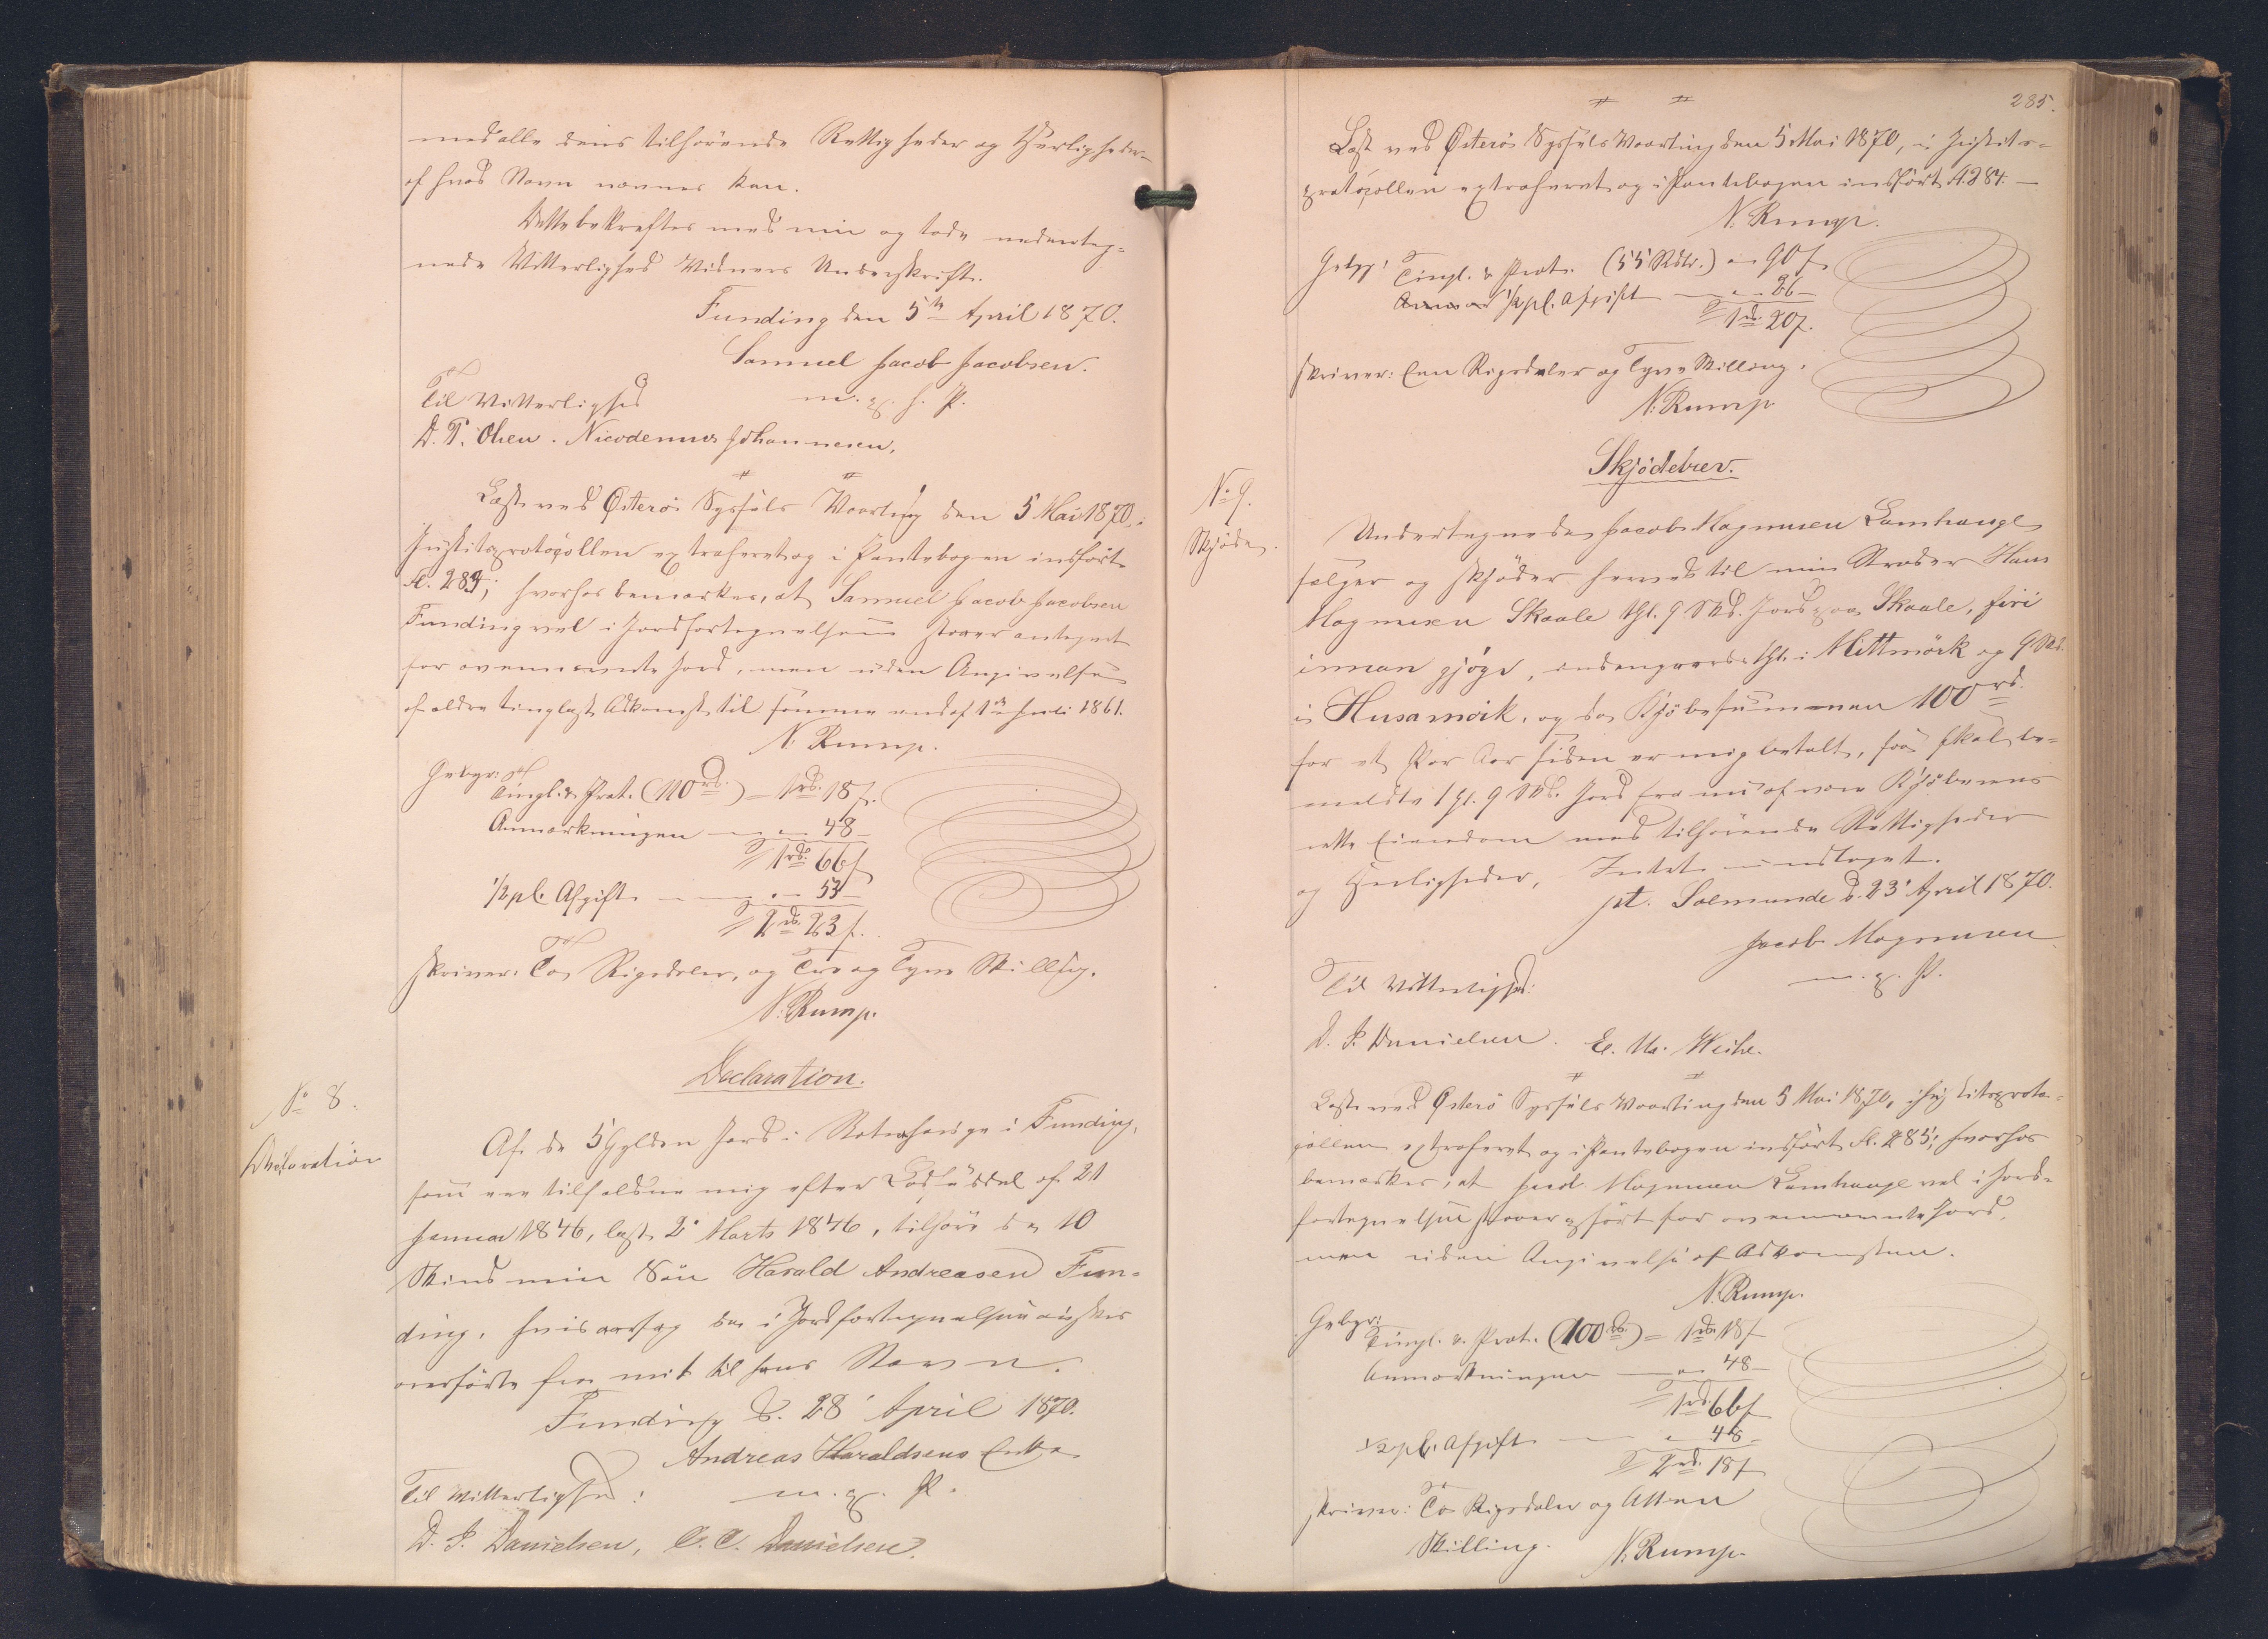 med alle dens tilhørende Rettigheder og Herligheder
af hvad Navn nævnes kan.
Dette bekræftes med min og tvde underteg=
nede Vitterligheds Vidners Underskrift.
Funding den 5te April 1870.
Samuel Jacob Jacobsen.
m. f. P.
Til Vitterlighed
D. P. Olsen. Nicodemus Johannesen.
Læst ved Østerø Syssels Vaarting den 5 Mai 1870, i
Justitsprotocollen extraheret og i Pantebogen indført
fl. 284; hvorhos bemærkes, at Samuel Jacob Jacobsen
Funding vel i Jordfortegnelsen staaer antegnet
for ovennævnte Jord, men uden Angivelse
af ældre tinglæst Adkomst til samme end af 1ste Juli 1861.
N. Rump.
Gebyr:
Tingl. & Prot. (110 rd.) = 1 rd. 18 s.
Anmærkningen — " — 48 —
= 1 rd. 66 s
½ pC. Afgift — " — 53 —
= 2 rd. 23 s.
skriver: To Rigsdaler, og Tre og Tyve Skilling.
N. Rump.
Declaration.
No 8.
Declaration
Af de 5 Gylden Jord i Funding,
som ere tilfaldne mig efter Lodseddel af 21
Januar 1846, læst 2' Marts 1846, tilhøre de 10
Skind min Søn Harald Andreasen Fun=
ding, hvisaarsag de i Jordfortegnelsen ønskes
overførte fra mit til hans Navn.
Funding d. 28' April 1870.
Andreas Haraldsens Enke
m. f. P.
Til Vitterlighed:
D. J. Danielsen, C. C. Danielsen.
285.
Læst ved Østerø Syssels Vaarting den 5 Mai 1870, i Justits=
protocollen extraheret og i Pantebogen indført fl. 284. —
N. Rump.
Gebyr: Tingl. & Prot. (55 Rdlr.) = " 90 s
½ pC. Afgift — " — 26 —
= 1 rd. 20 s.
skriver: Een Rigsdaler og Tyve Skilling.
N. Rump
Skjødebrev.
No 9.
Skjøde.
Undertegnede Jacob Magnusen Lamhauge
sælger og skjøder herved til min Broder Hans
Magnusen Skaale 1 Gl. 9 Skd. Jord paa Skaale, firi
innan gjógv, 1 Gl. i Mittmörk og 9 Skd.
i Husamörk, og da Kjøbesummen 100 rd.
for et Par Aar siden er mig betalt, saa skal be=
meldte 1 Gl. 9 Skd. Jord fra nu af være Kjøberens
rette Eiendom med tilhørende Rettigheder
og Herligheder, Intet undtaget.
pt. Solmunde d. 23' April 1870.
Jacob Magnusen
m. f. P.
Til Vitterlighed:
D. J. Danielsen. E. M. Weihe.
Læst ved Østerø Syssels Vaarting den 5 Mai 1870, i Justitsproto=
collen extraheret og i Pantebogen indført fl. 285; hvorhos
bemærkes, at Jacob Magnusen Lamhauge vel i Jord=
fortegnelsen staaer opført for ovennævnte Jord,
men uden Angivelse af Adkomsten.
N. Rump.
Gebyr:
Tingl. & Prot. (100 rd.) = 1 rd. 18 s
Anmærkningen — " 48 —
= 1 rd. 66 s
½ pC. Afgift — " 48 —
= 2 rd. 18 s
skriver: To Rigsdaler og Atten
Skilling. N. Rump.